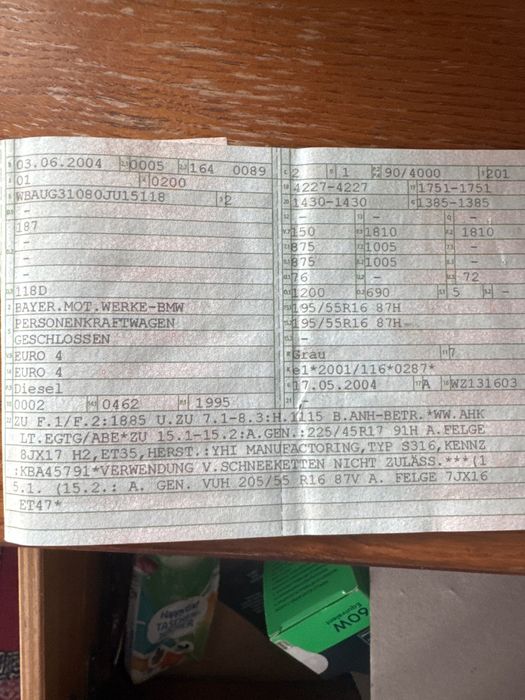 03.06.2004 0005 164 0089
01 0200
WBAUG31080JU15118 2
-
187
-
-
-
118D
BAYER.MOT.WERKE-BMW
PERSONENKRAFTWAGEN
GESCHLOSSEN
EURO 4
EURO 4
Diesel
0002 0462 1995
2 1 90/4000 201
4227-4227 1751-1751
1430-1430 1385-1385
- - -
150 1810 1810
875 1005 -
875 1005 -
76 - 72
1200 690 5 -
195/55R16 87H
195/55R16 87H-
-
Grau 7
e1*2001/116*0287*
17.05.2004 A WZ131603
-
ZU F.1/F.2:1885 U.ZU 7.1-8.3:H.1115 B.ANH-BETR.*WW.AHK
LT.EGTG/ABE*ZU 15.1-15.2:A.GEN.:225/45R17 91H A.FELGE
8JX17 H2,ET35,HERST.:YHI MANUFACTORING,TYP S316,KENNZ
:KBA45791*VERWENDUNG V.SCHNEEKETTEN NICHT ZULÄSS.***(1
5.1. (15.2.: A. GEN. VUH 205/55 R16 87V A. FELGE 7JX16
ET47*
60W
Equivalent